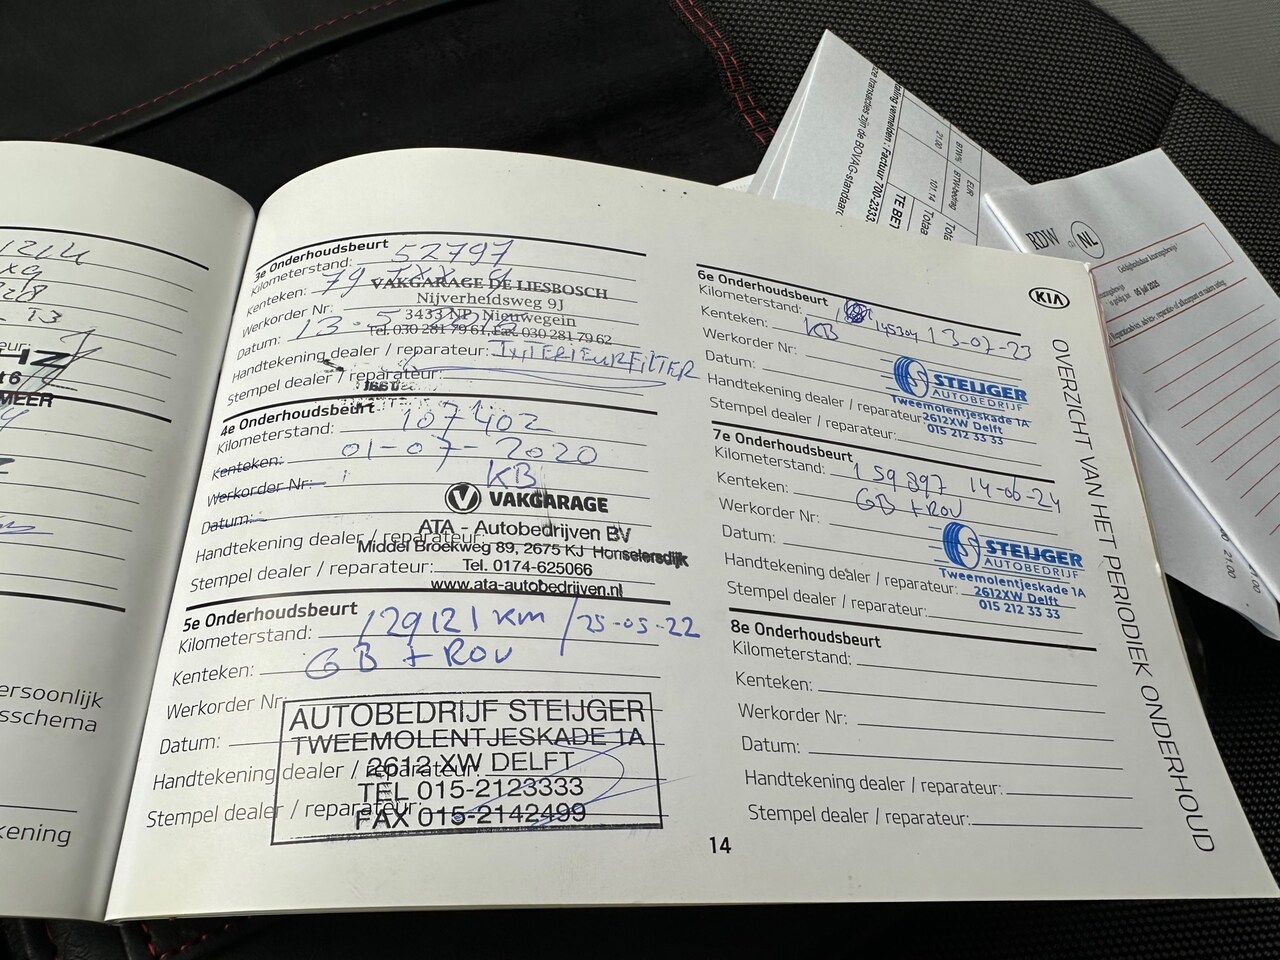 3e Onderhoudsbeurt
Kilometerstand: 52797
Kenteken: 79
VAKGARAGE DE LIESBOSCH
Nijverheidsweg 9J
Werkorder Nr:
3433 NP Nieuwegein
Datum: 13-5
Tel. 030 281 79 61, Fax 030 281 79 62
Handtekening dealer / reparateur: INTERIEURFILTER
Stempel dealer / reparateur:
4e Onderhoudsbeurt
Kilometerstand: 107402
Kenteken: 01-07-2020
Werkorder Nr: KB
VAKGARAGE
Datum:
ATA - Autobedrijven BV
Handtekening dealer / reparateur:
Middel Broekweg 89, 2675 KJ Honselersdijk
Stempel dealer / reparateur:
Tel. 0174-625066
www.ata-autobedrijven.nl
5e Onderhoudsbeurt
Kilometerstand: 129121 km / 25-05-22
Kenteken: GB + ROV
Werkorder Nr:
AUTOBEDRIJF STEIJGER
Datum:
TWEEMOLENTJESKADE 1A
2612 XW DELFT
Handtekening dealer / reparateur:
TEL 015-2123333
Stempel dealer / reparateur:
FAX 015-2142499
6e Onderhoudsbeurt
Kilometerstand: 145304 13-07-23
Kenteken: KB
Werkorder Nr:
Datum:
STEIJGER
AUTOBEDRIJF
Handtekening dealer / reparateur:
Tweemolentjeskade 1A
2612XW Delft
Stempel dealer / reparateur:
015 212 33 33
7e Onderhoudsbeurt
Kilometerstand: 159897 14-06-24
Kenteken: GB + ROV
Werkorder Nr:
Datum:
STEIJGER
AUTOBEDRIJF
Handtekening dealer / reparateur:
Tweemolentjeskade 1A
2612XW Delft
Stempel dealer / reparateur:
015 212 33 33
8e Onderhoudsbeurt
Kilometerstand:
Kenteken:
Werkorder Nr:
Datum:
Handtekening dealer / reparateur:
Stempel dealer / reparateur:
14
KIA
OVERZICHT VAN HET PERIODIEK ONDERHOUD
ersoonlijk
sschema
kening
MEER
RDW
NL
BTW% BTW-bedrag
21.00 101.14
EUR
TE BET
vermelden: Factuur 700-233
transacties zijn de BOVAG-standaar